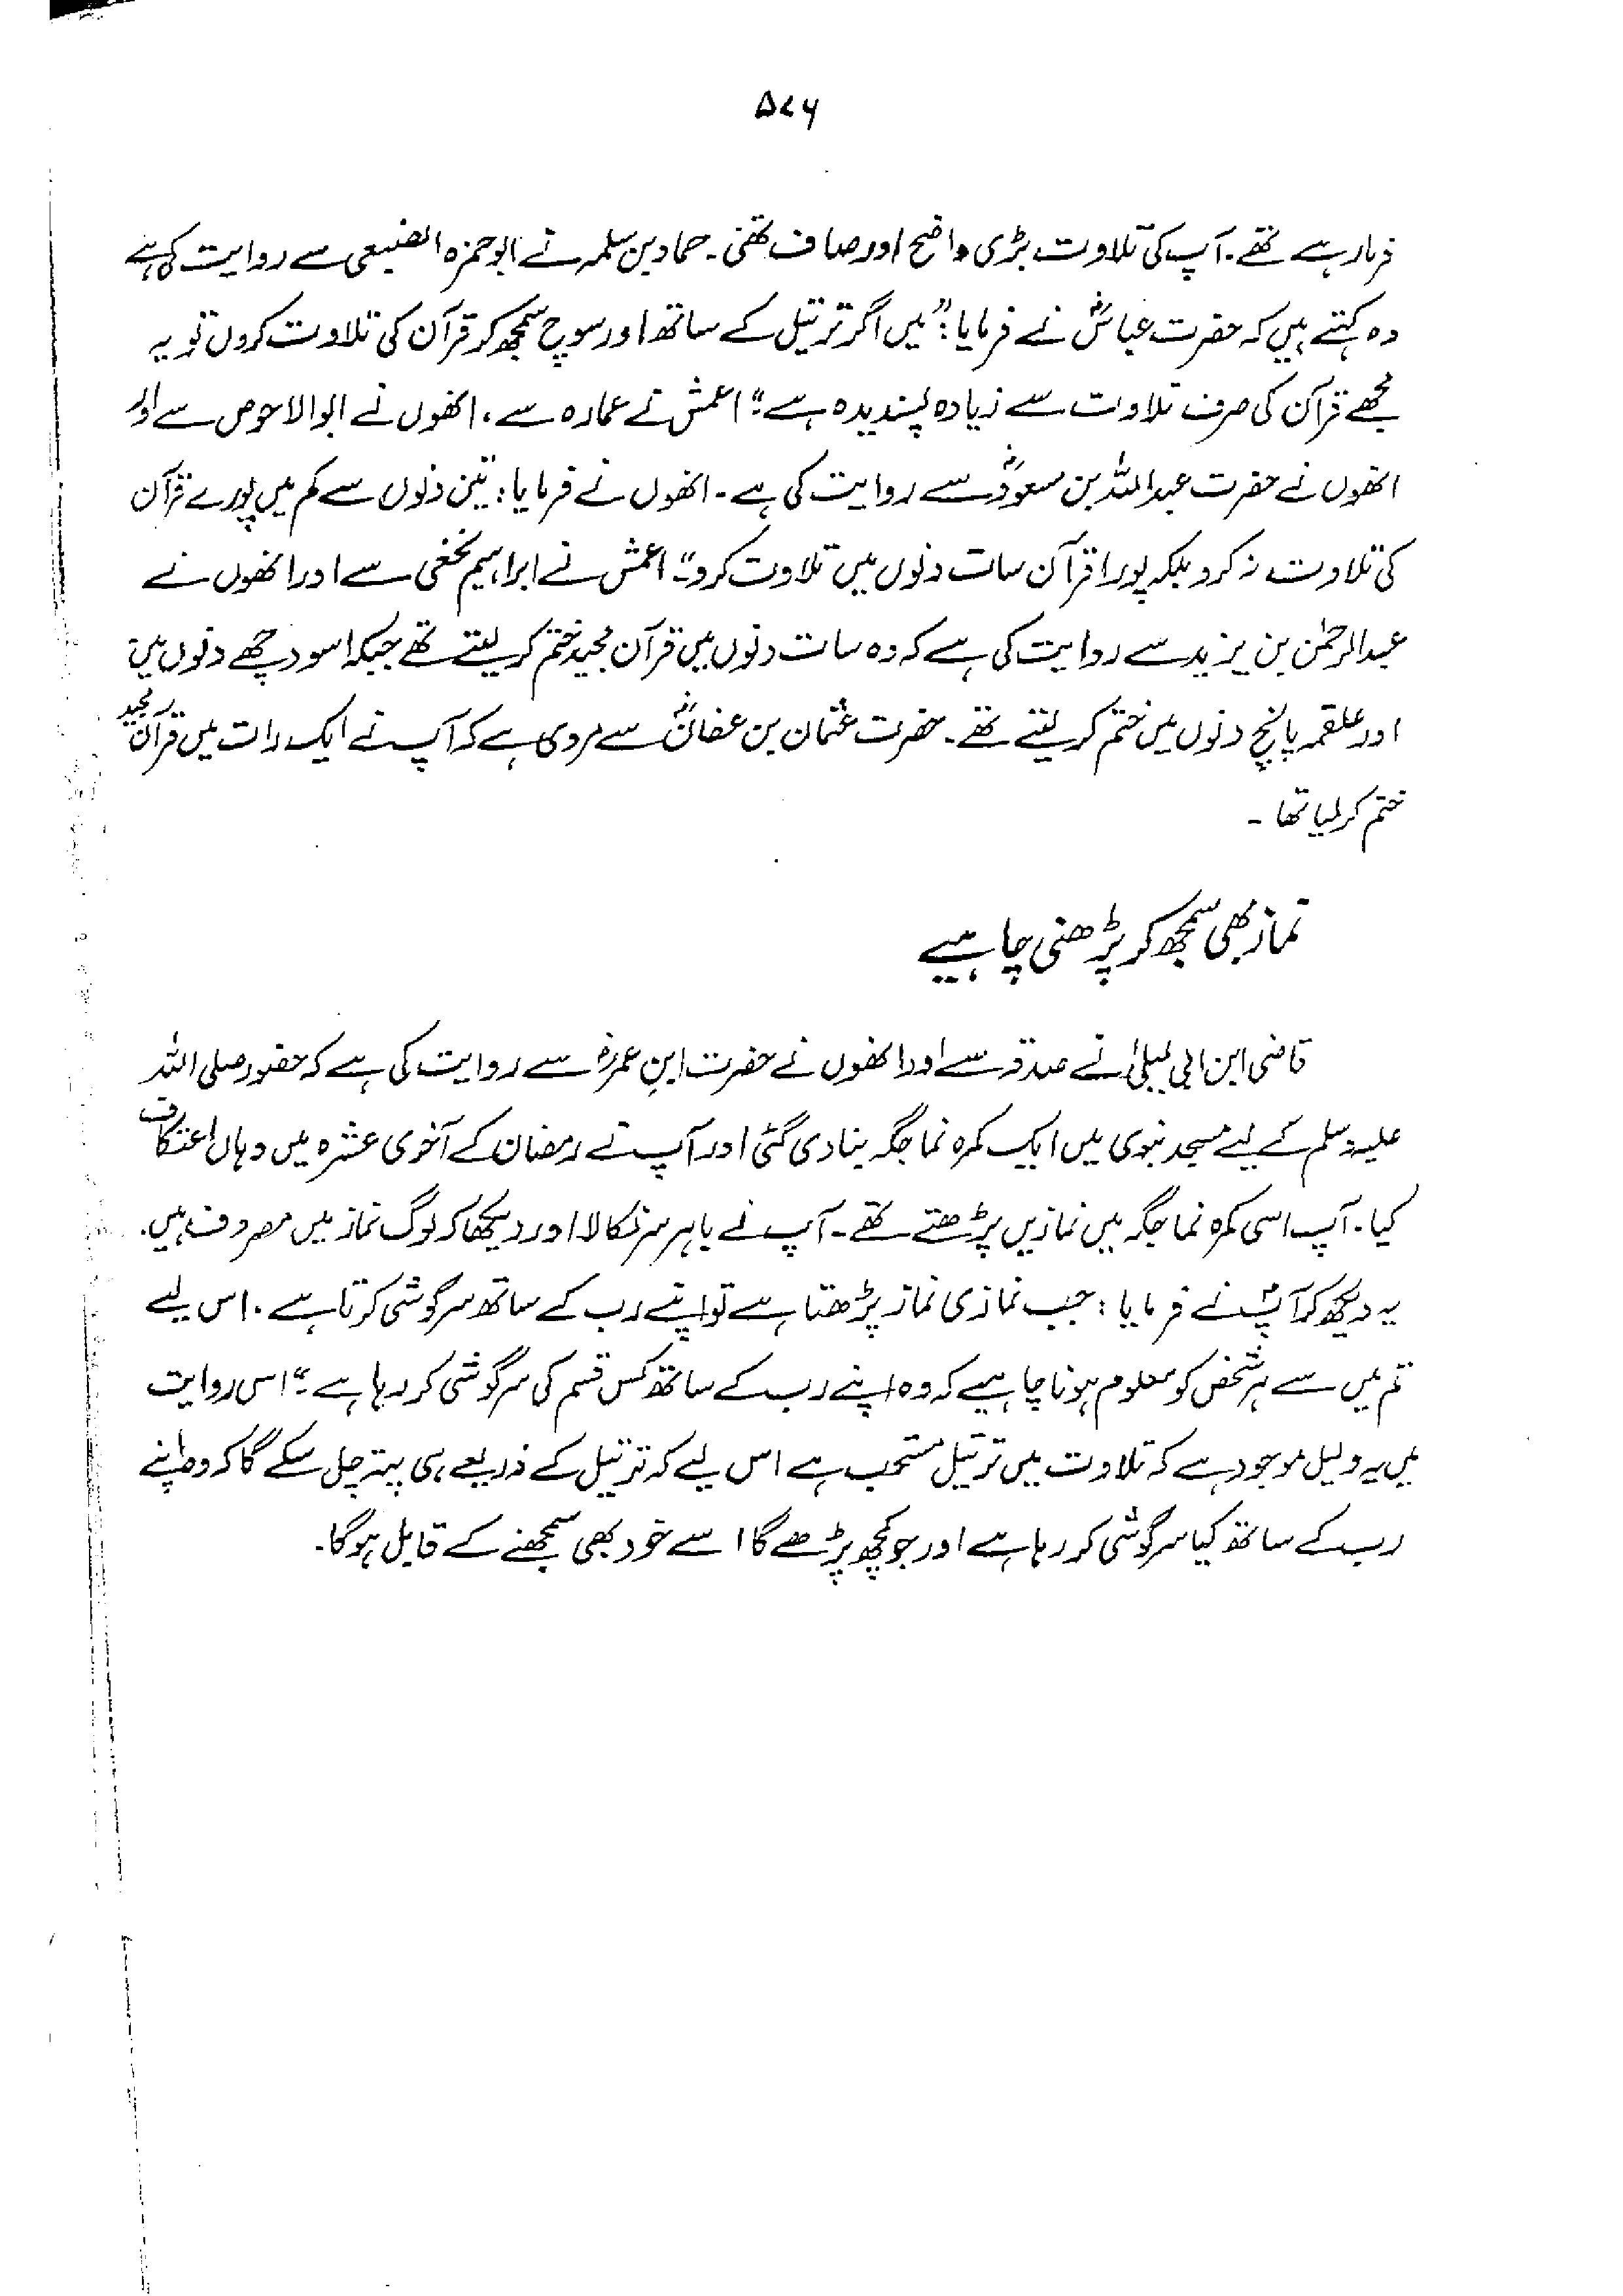 ۵۷۶
فرما رہے تھے۔ آپ کی تلاوت بڑی واضح اور صاف تھی۔ حماد بن سلمہ نے ابوحمزہ الضبیعی سے روایت کی ہے
وہ کہتے ہیں کہ حضرت عباسؓ نے فرمایا: "میں اگر ترتیل کے ساتھ اور سوچ سمجھ کر قرآن کی تلاوت کروں تو یہ
مجھے قرآن کی صرف تلاوت سے زیادہ پسندیدہ ہے"۔ اعمش نے عمارہ سے، انھوں نے ابوالاحوص سے اور
انھوں نے حضرت عبداللہ بن مسعودؓ سے روایت کی ہے۔ انھوں نے فرمایا: "تین دنوں سے کم میں پورے قرآن
کی تلاوت نہ کرو بلکہ پورا قرآن سات دنوں میں تلاوت کرو"۔ اعمش نے ابراہیم نخعی سے اور انھوں نے
عبدالرحمٰن بن یزید سے روایت کی ہے کہ وہ سات دنوں میں قرآن مجید ختم کر لیتے تھے جبکہ اسود چھے دنوں میں
اور علقمہ پانچ دنوں میں ختم کر لیتے تھے۔ حضرت عثمان بن عفانؓ سے مروی ہے کہ آپ نے ایک رات میں قرآن مجید
ختم کر لیا تھا۔
نماز بھی سمجھ کر پڑھنی چاہیے
قاضی ابن ابی لیلیٰ نے صدقہ سے اور انھوں نے حضرت ابن عمرؓ سے روایت کی ہے کہ حضور صلی اللہ
علیہ وسلم کے لیے مسجد نبوی میں ایک کمرہ نما جگہ بنا دی گئی اور آپ نے رمضان کے آخری عشرہ میں وہاں اعتکاف
کیا۔ آپ اسی کمرہ نما جگہ میں نمازیں پڑھتے تھے۔ آپ نے باہر سر نکالا اور دیکھا کہ لوگ نماز میں مصروف ہیں۔
یہ دیکھ کر آپؐ نے فرمایا: جب نمازی نماز پڑھتا ہے تو اپنے رب کے ساتھ سرگوشی کرتا ہے۔ اس لیے
تم میں سے ہر شخص کو معلوم ہونا چاہیے کہ وہ اپنے رب کے ساتھ کس قسم کی سرگوشی کر رہا ہے"۔ اس روایت
میں یہ دلیل موجود ہے کہ تلاوت میں ترتیل مستحب ہے اس لیے کہ ترتیل کے ذریعے ہی پتہ چل سکے گا کہ وہ اپنے
رب کے ساتھ کیا سرگوشی کر رہا ہے اور جو کچھ پڑھے گا اسے خود بھی سمجھنے کے قابل ہوگا۔